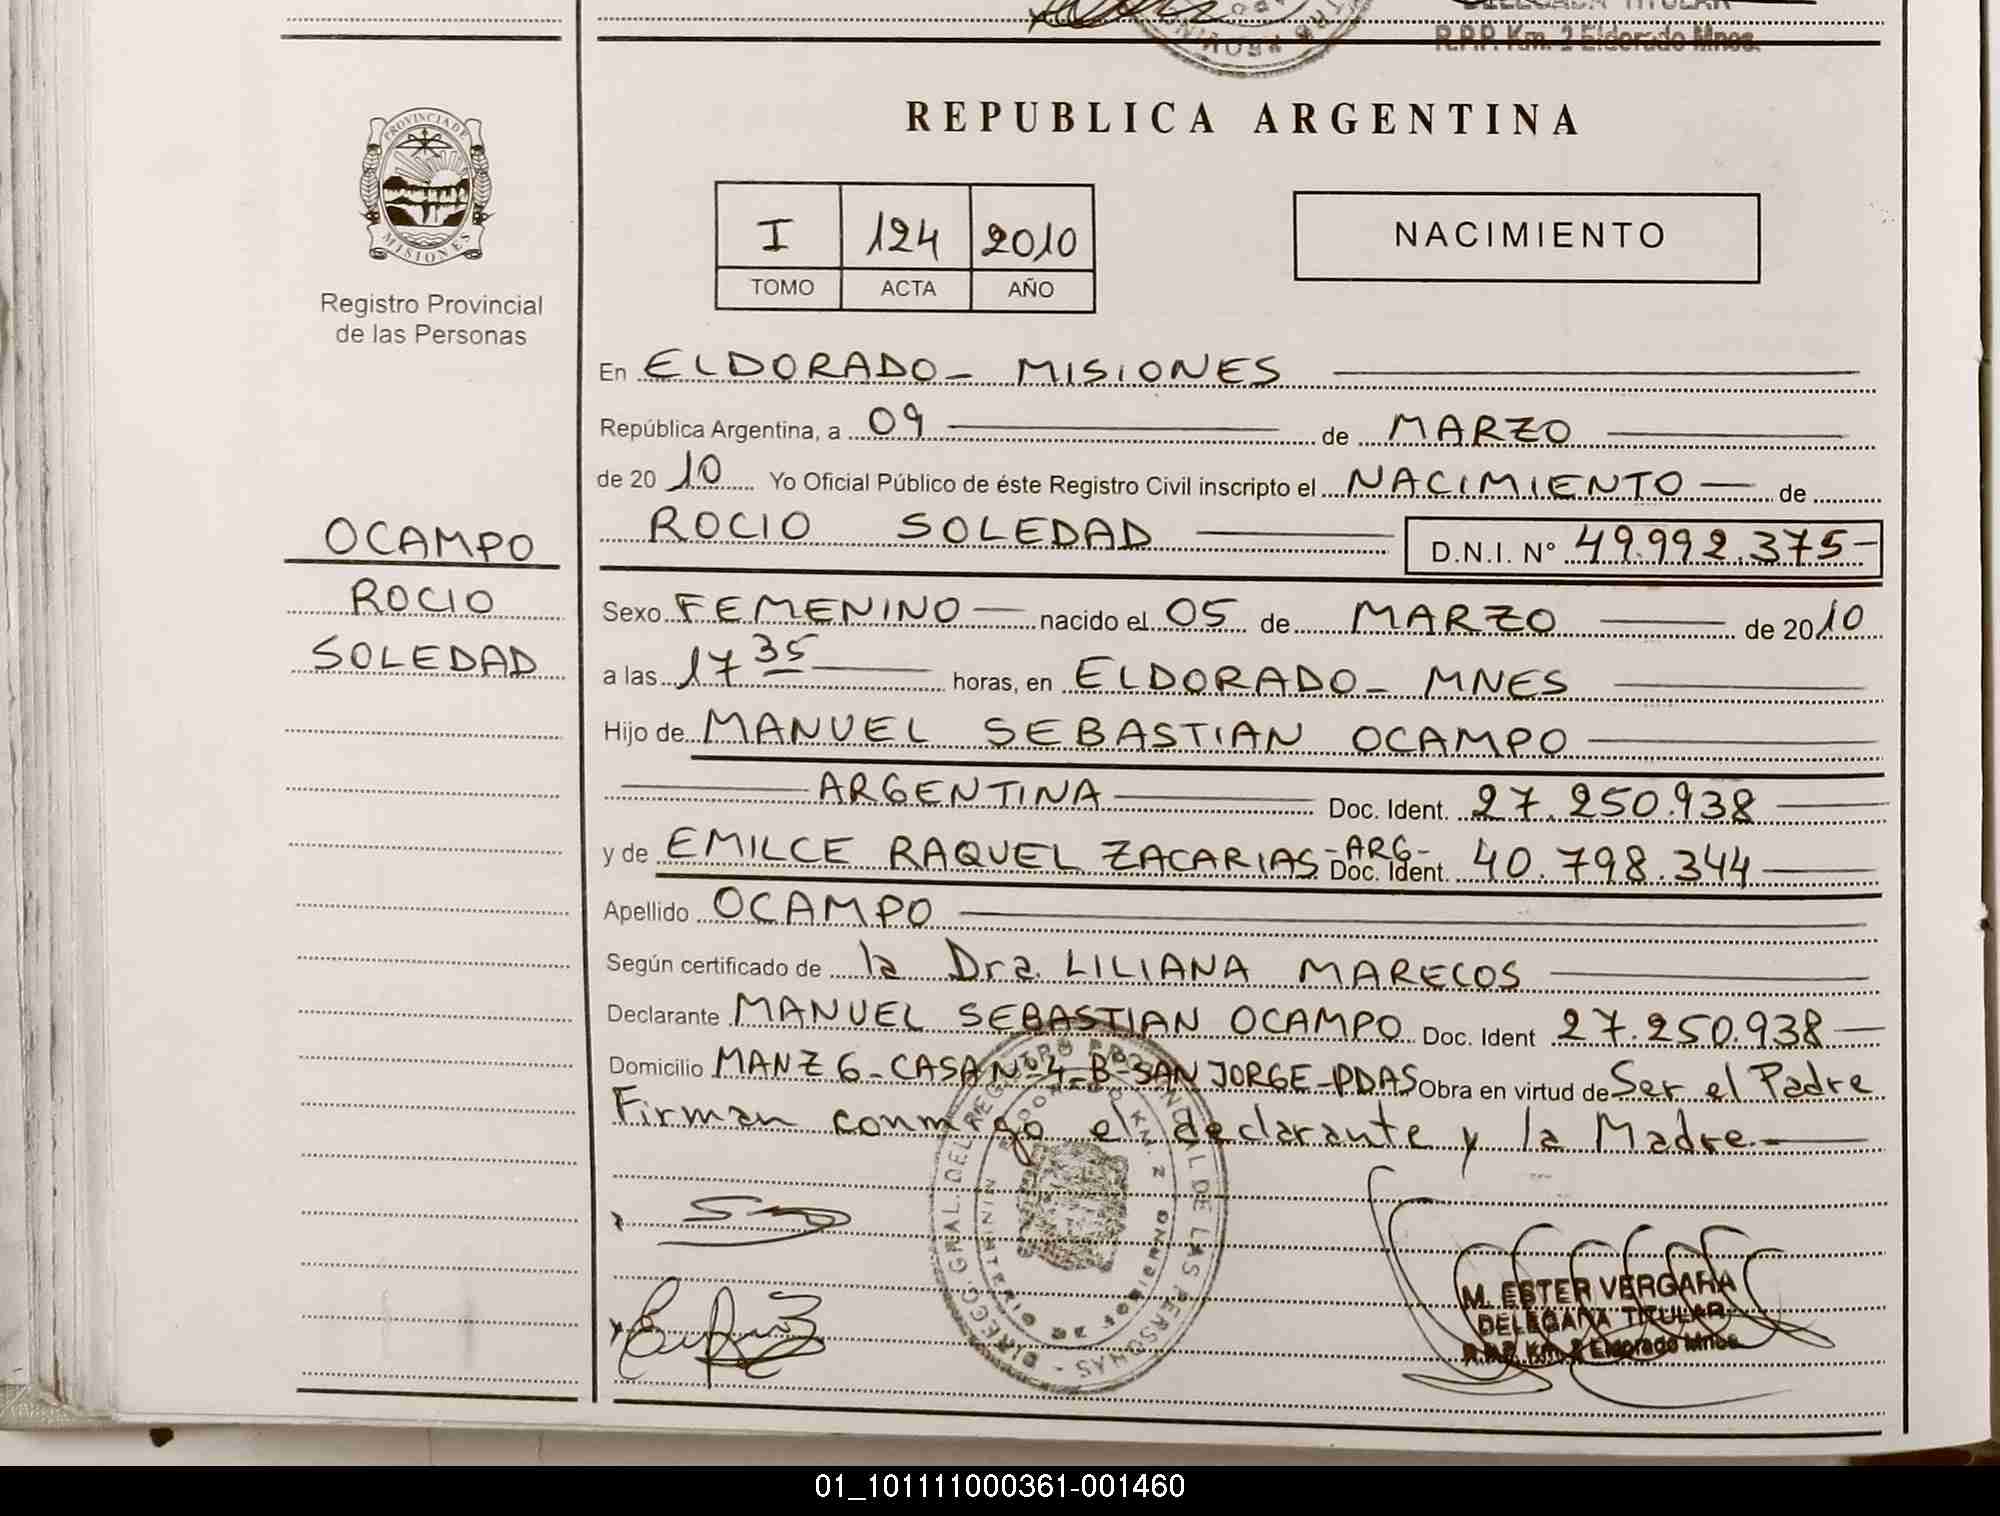 DELEGADA TITULAR
R.P.P. Km. 2 Eldorado Mnes.
PROVINCIA DE
MISIONES
Registro Provincial
de las Personas
REPUBLICA ARGENTINA
I 124 2010
TOMO ACTA AÑO
NACIMIENTO
En ELDORADO - MISIONES
República Argentina, a 09 de MARZO
de 2010 Yo Oficial Público de éste Registro Civil inscripto el NACIMIENTO de
ROCIO SOLEDAD D.N.I. N° 49.992.375-
OCAMPO
ROCIO
SOLEDAD
Sexo FEMENINO nacido el 05 de MARZO de 2010
a las 17 35 horas, en ELDORADO - MNES
Hijo de MANUEL SEBASTIAN OCAMPO
ARGENTINA Doc. Ident. 27.250.938
y de EMILCE RAQUEL ZACARIAS -ARG- Doc. Ident. 40.798.344
Apellido OCAMPO
Según certificado de la Dra. LILIANA MARECOS
Declarante MANUEL SEBASTIAN OCAMPO Doc. Ident 27.250.938
Domicilio MANZ 6 - CASA Nº 4 - Bº SAN JORGE - PDAS Obra en virtud de Ser el Padre
Firman conmigo el declarante y la Madre.
DIRECC. GRAL. DEL REGISTRO PROVINCIAL DE LAS PERSONAS
M. ESTER VERGARA
DELEGADA TITULAR
R.P.P. Km. 2 Eldorado Mnes.
01_101111000361-001460